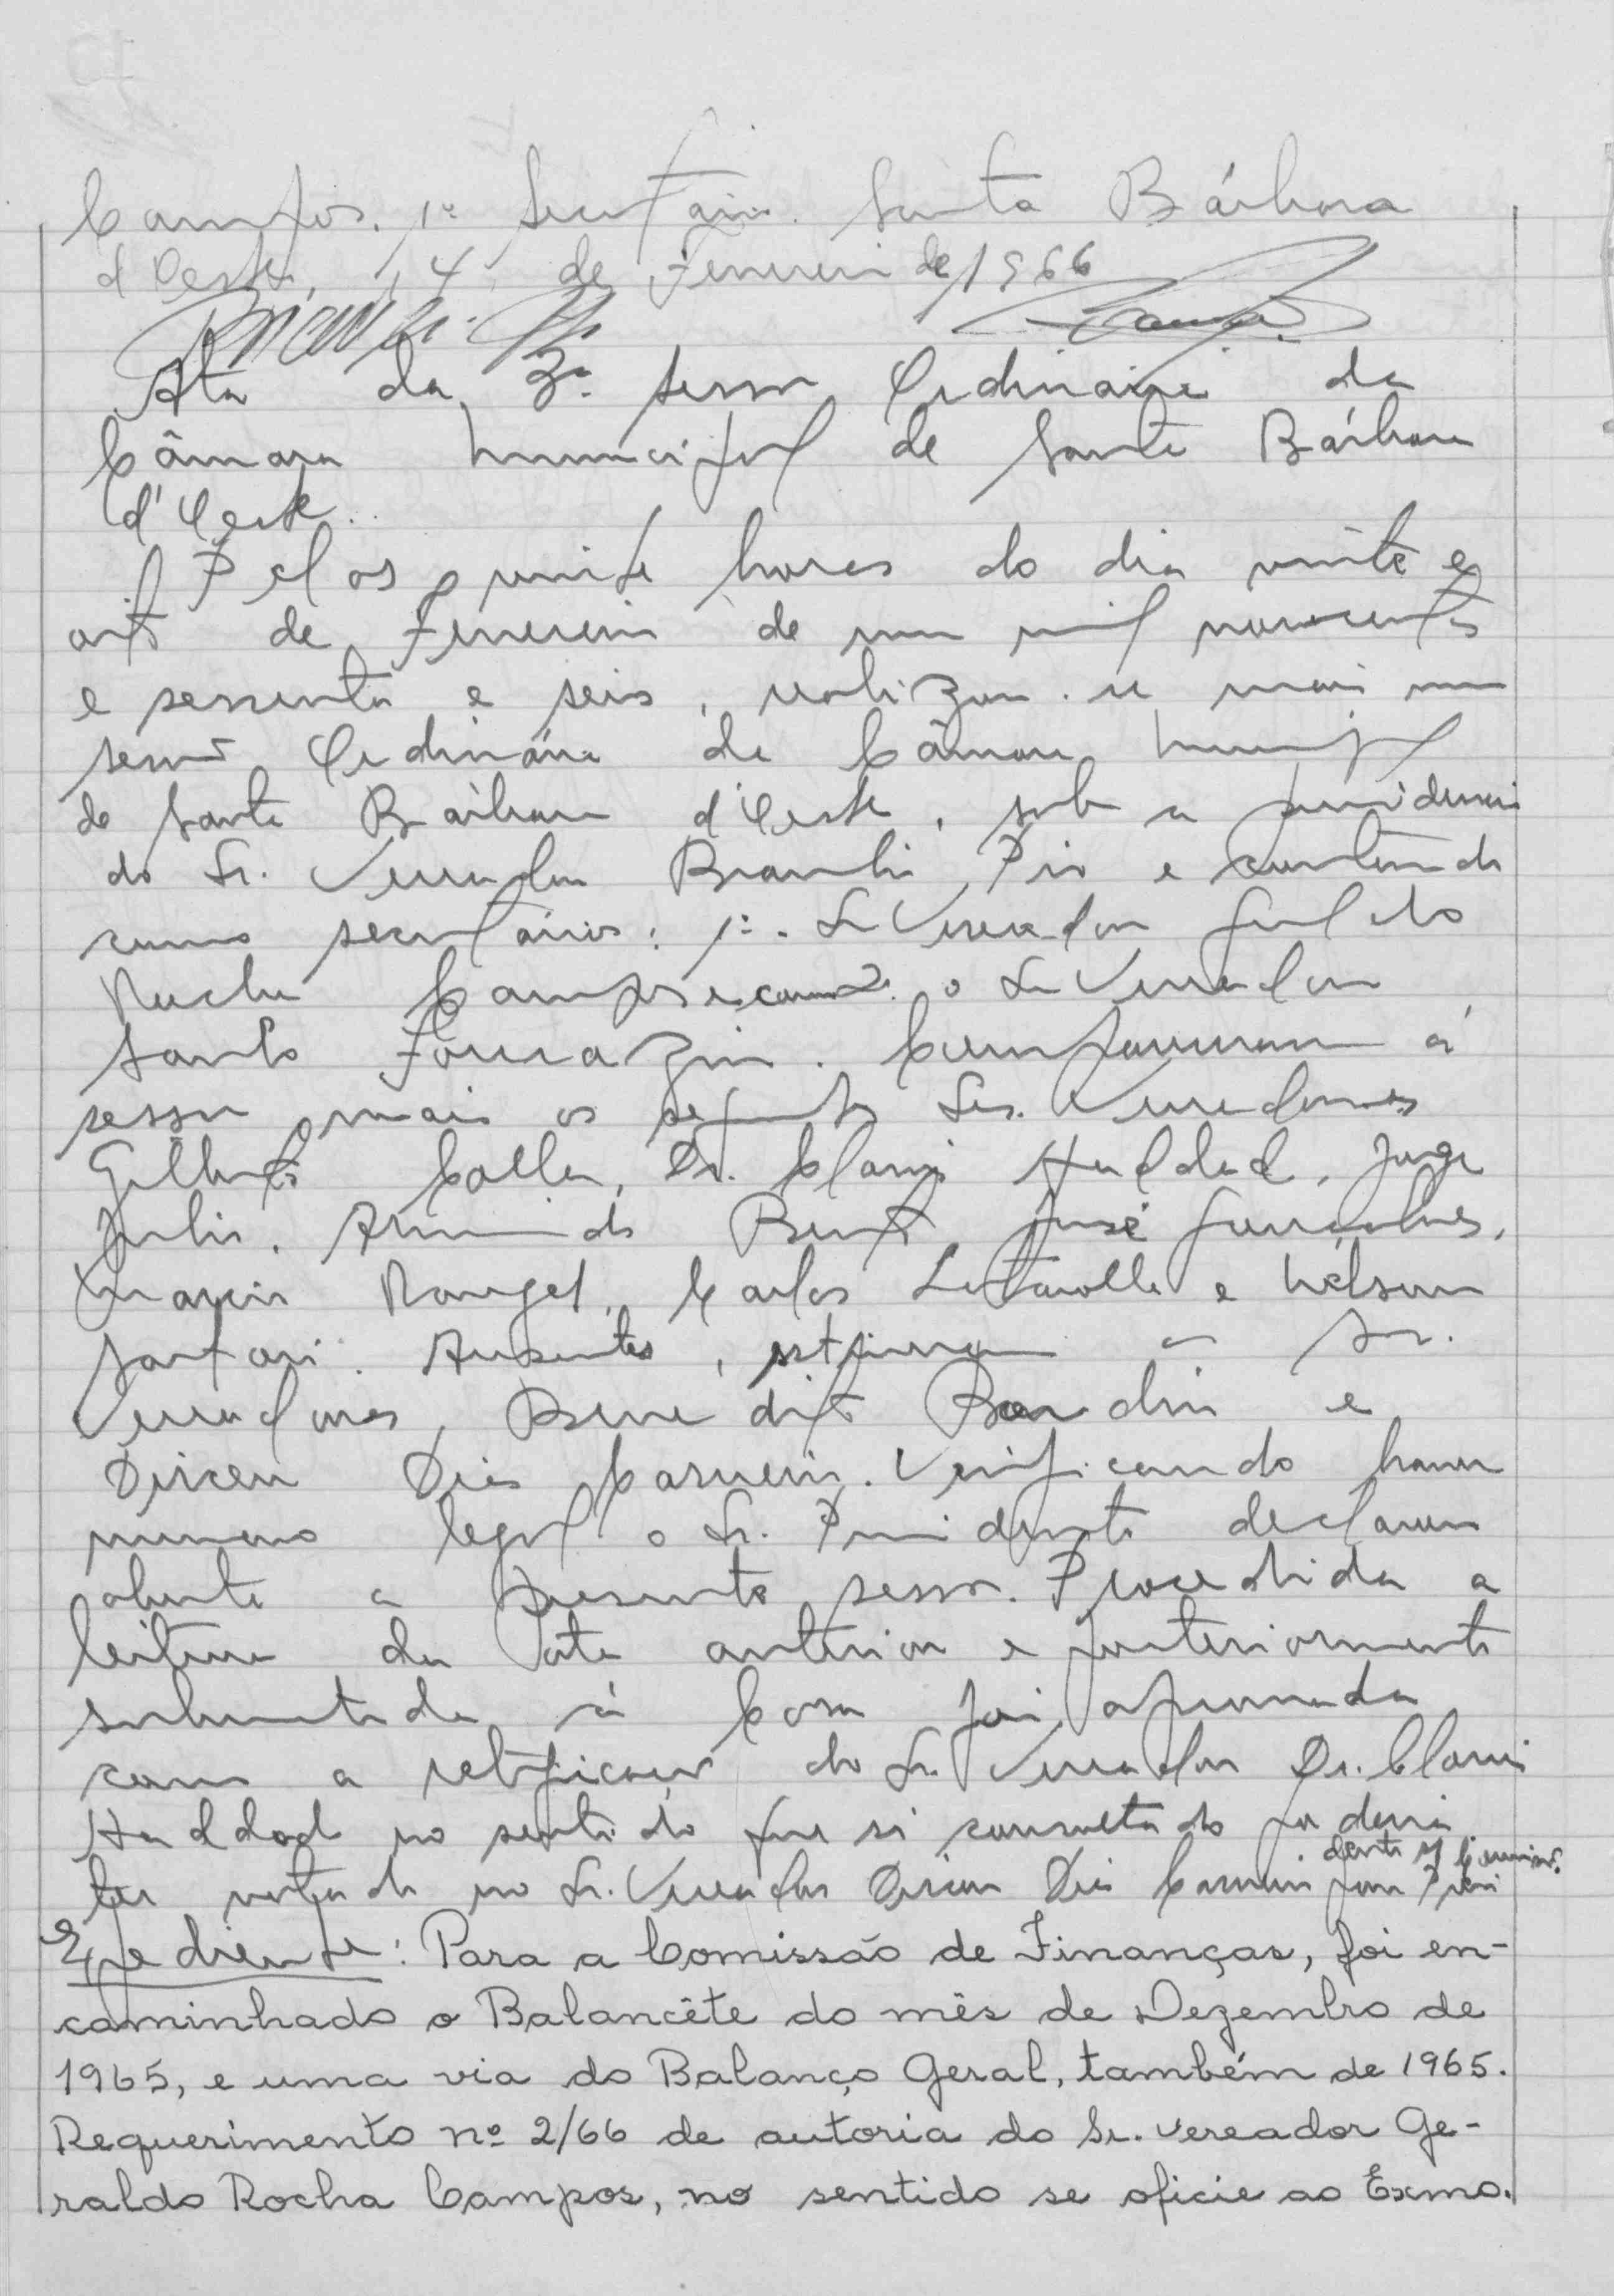 Campos, 1º Secretário. Santa Bárbara
d'Oeste, 14 de Fevereiro de 1966
Ata da 3ª sessão Ordinária da
Câmara Municipal de Santa Bárbara
d'Oeste.
Pelas vinte horas do dia vinte e
oito de Fevereiro de um mil novecentos
e sessenta e seis, realizou-se mais uma
sessão Ordinária da Câmara Municipal
de Santa Bárbara d'Oeste, sob a presidencia
do Sr. Vereador Braulio Pio e
como secretários: 1º. Sr Vereador Geraldo
Rocha Campos e como 2º o Sr Vereador
Santo Fornazin. Compareceram á
sessão mais os seguintes Srs. Vereadores
Gilberto Calla, Dr. Clovis Haddad, Jorge
Julio, Armindo Bento, José Gonçalves,
Rangel, Carlos e Nélson
Sartori. Ausentes, estiveram os Srs.
Vereadores, Benedito e
Dirceu Dias Carneiro. Verificando haver
número legal o Sr. Presidente declarou
aberta a presente sessão. Procedida a
leitura da Ata anterior e posteriormente
submetida á Casa foi aprovada
com a retificação do Sr. Vereador Dr. Clovis
Haddad no sentido que si consultado poderia
ter votado no Sr. Vereador Dirceu Dias Carneiro para Presi
dente da Comissão.
Expediente: Para a Comissão de Finanças, foi en-
caminhado o Balancête do mês de Dezembro de
1965, e uma via do Balanço Geral, também de 1965.
Requerimento nº 2/66 de autoria do Sr. vereador Ge-
raldo Rocha Campos, no sentido se oficie ao Exmo.